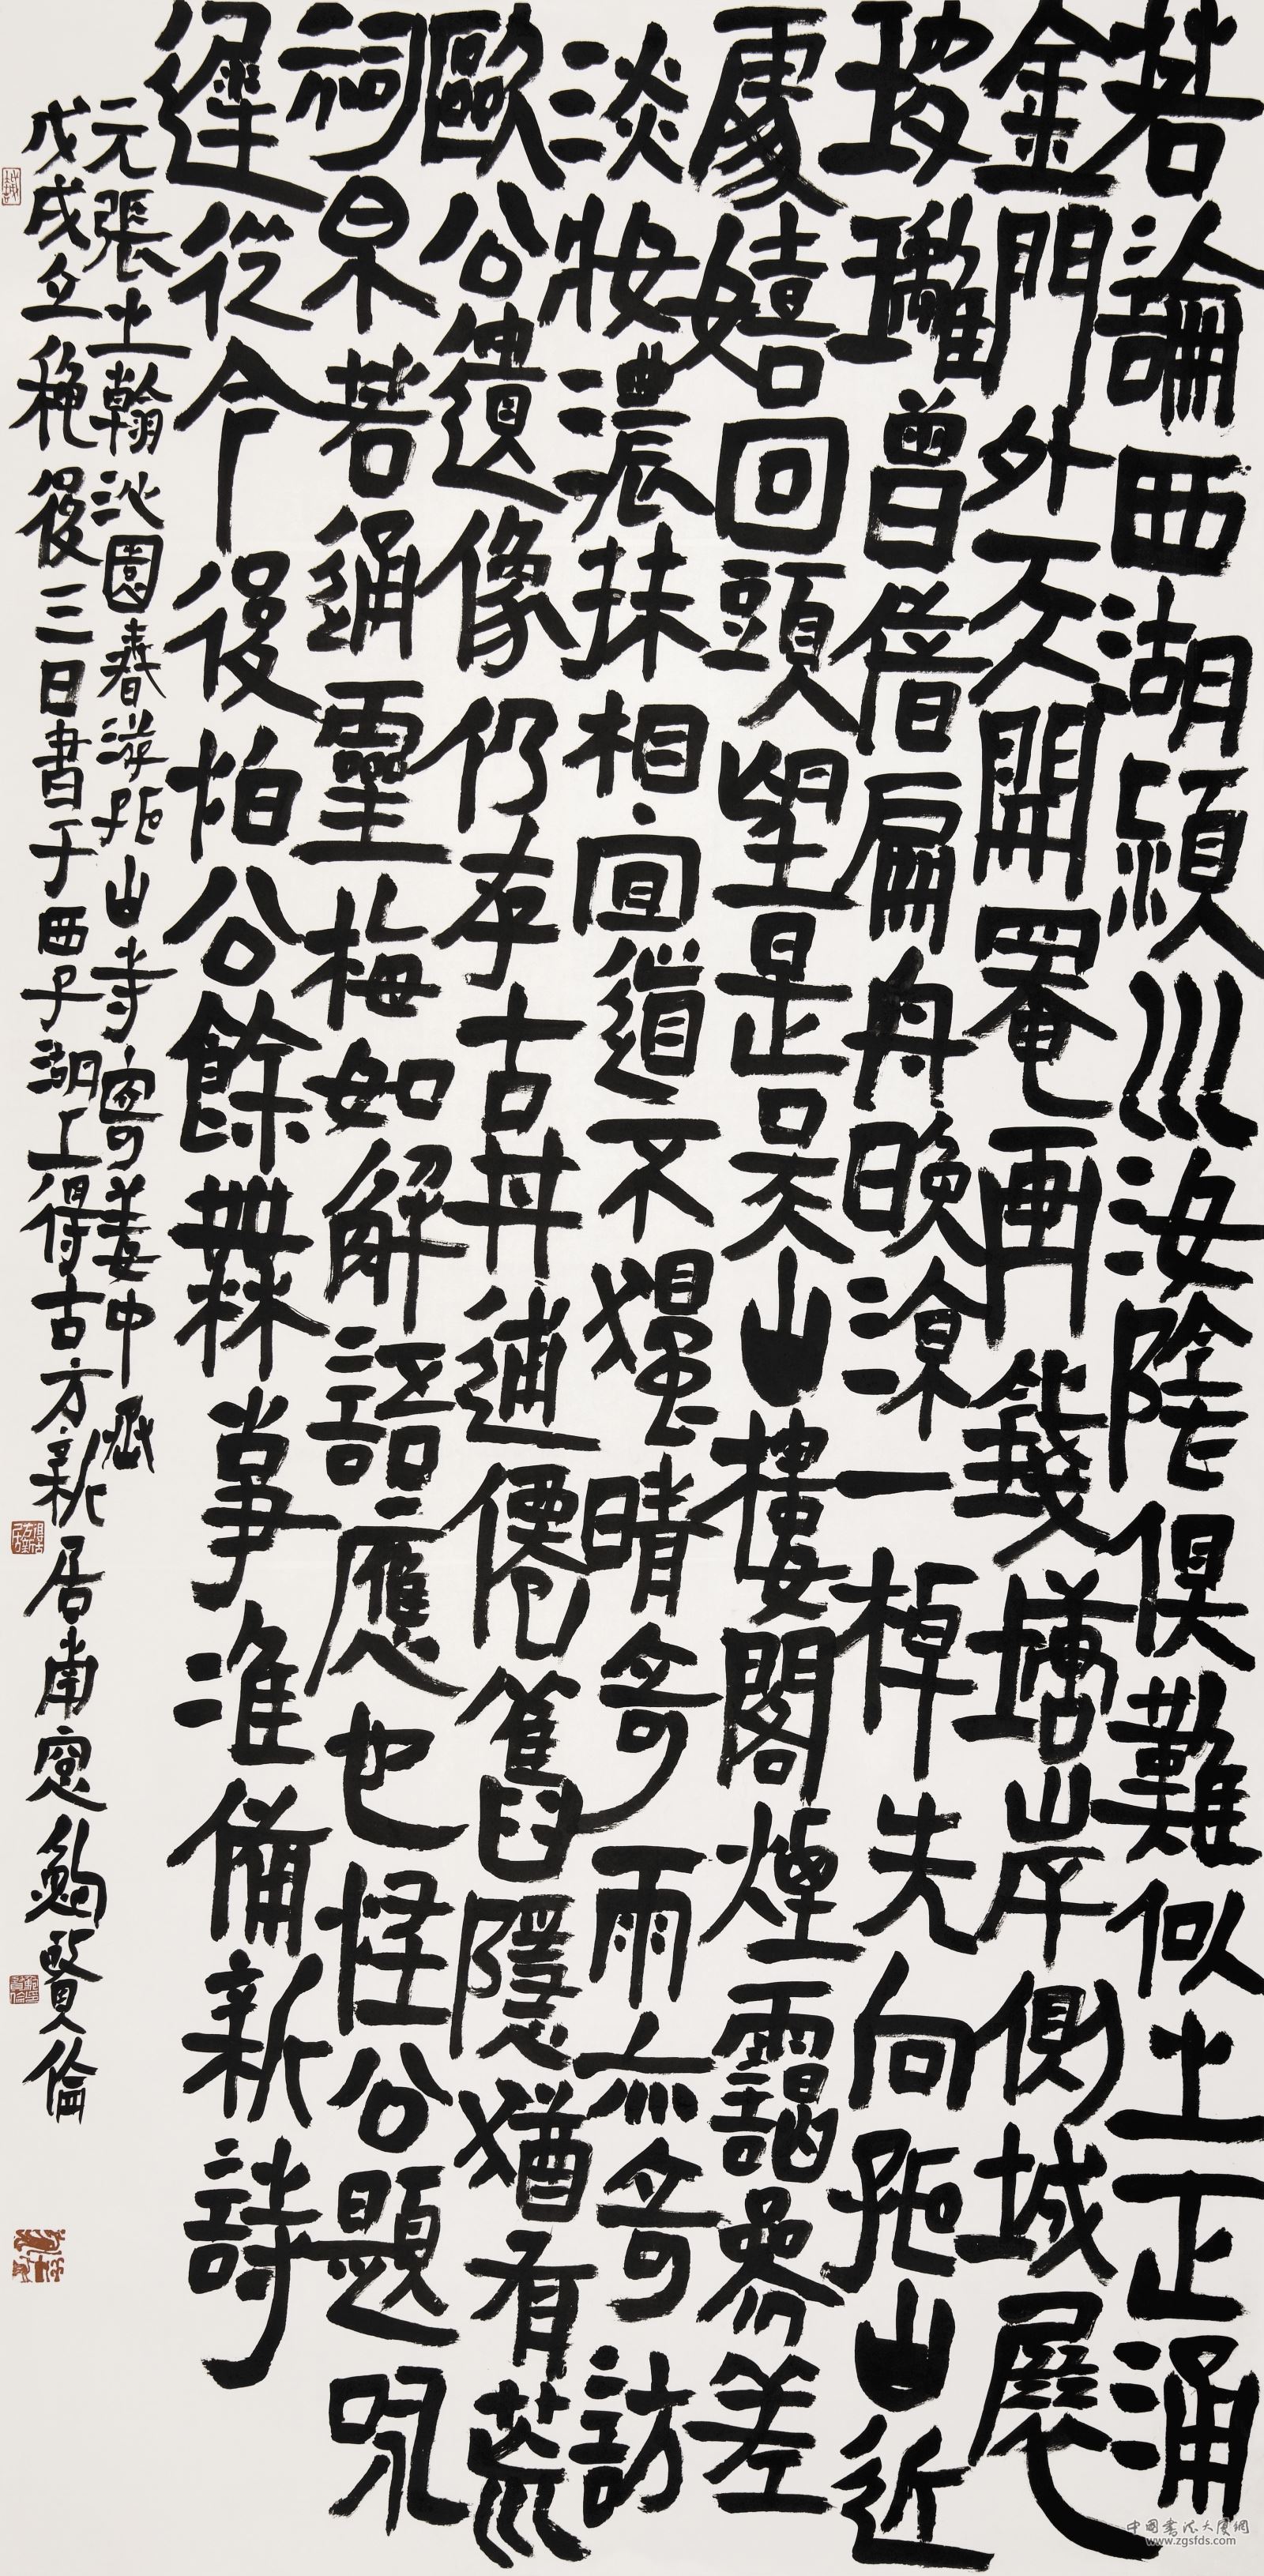 若論西湖潁川汝陰俱難似之正涌
金門外天開罨畫錢塘岸側城展
玻璃曾借扁舟晚涼一棹先向孤山近
處嬉回頭望是吳山樓閣煙靄參差
淡妝濃抹相宜道不獨晴奇雨亦奇訪
歐公遺像仍存古井逋僊舊隱猶有荒
祠泉若通靈梅如解語應也怪公題咏
遲從今後怕公餘無事准備新詩
元張之翰沁園春游孤山寺寄姜中丞
戊戌立秋後三日書于西子湖上得古方新居南窗鮑賢倫
中國書法大廈網
www.zgsfds.com